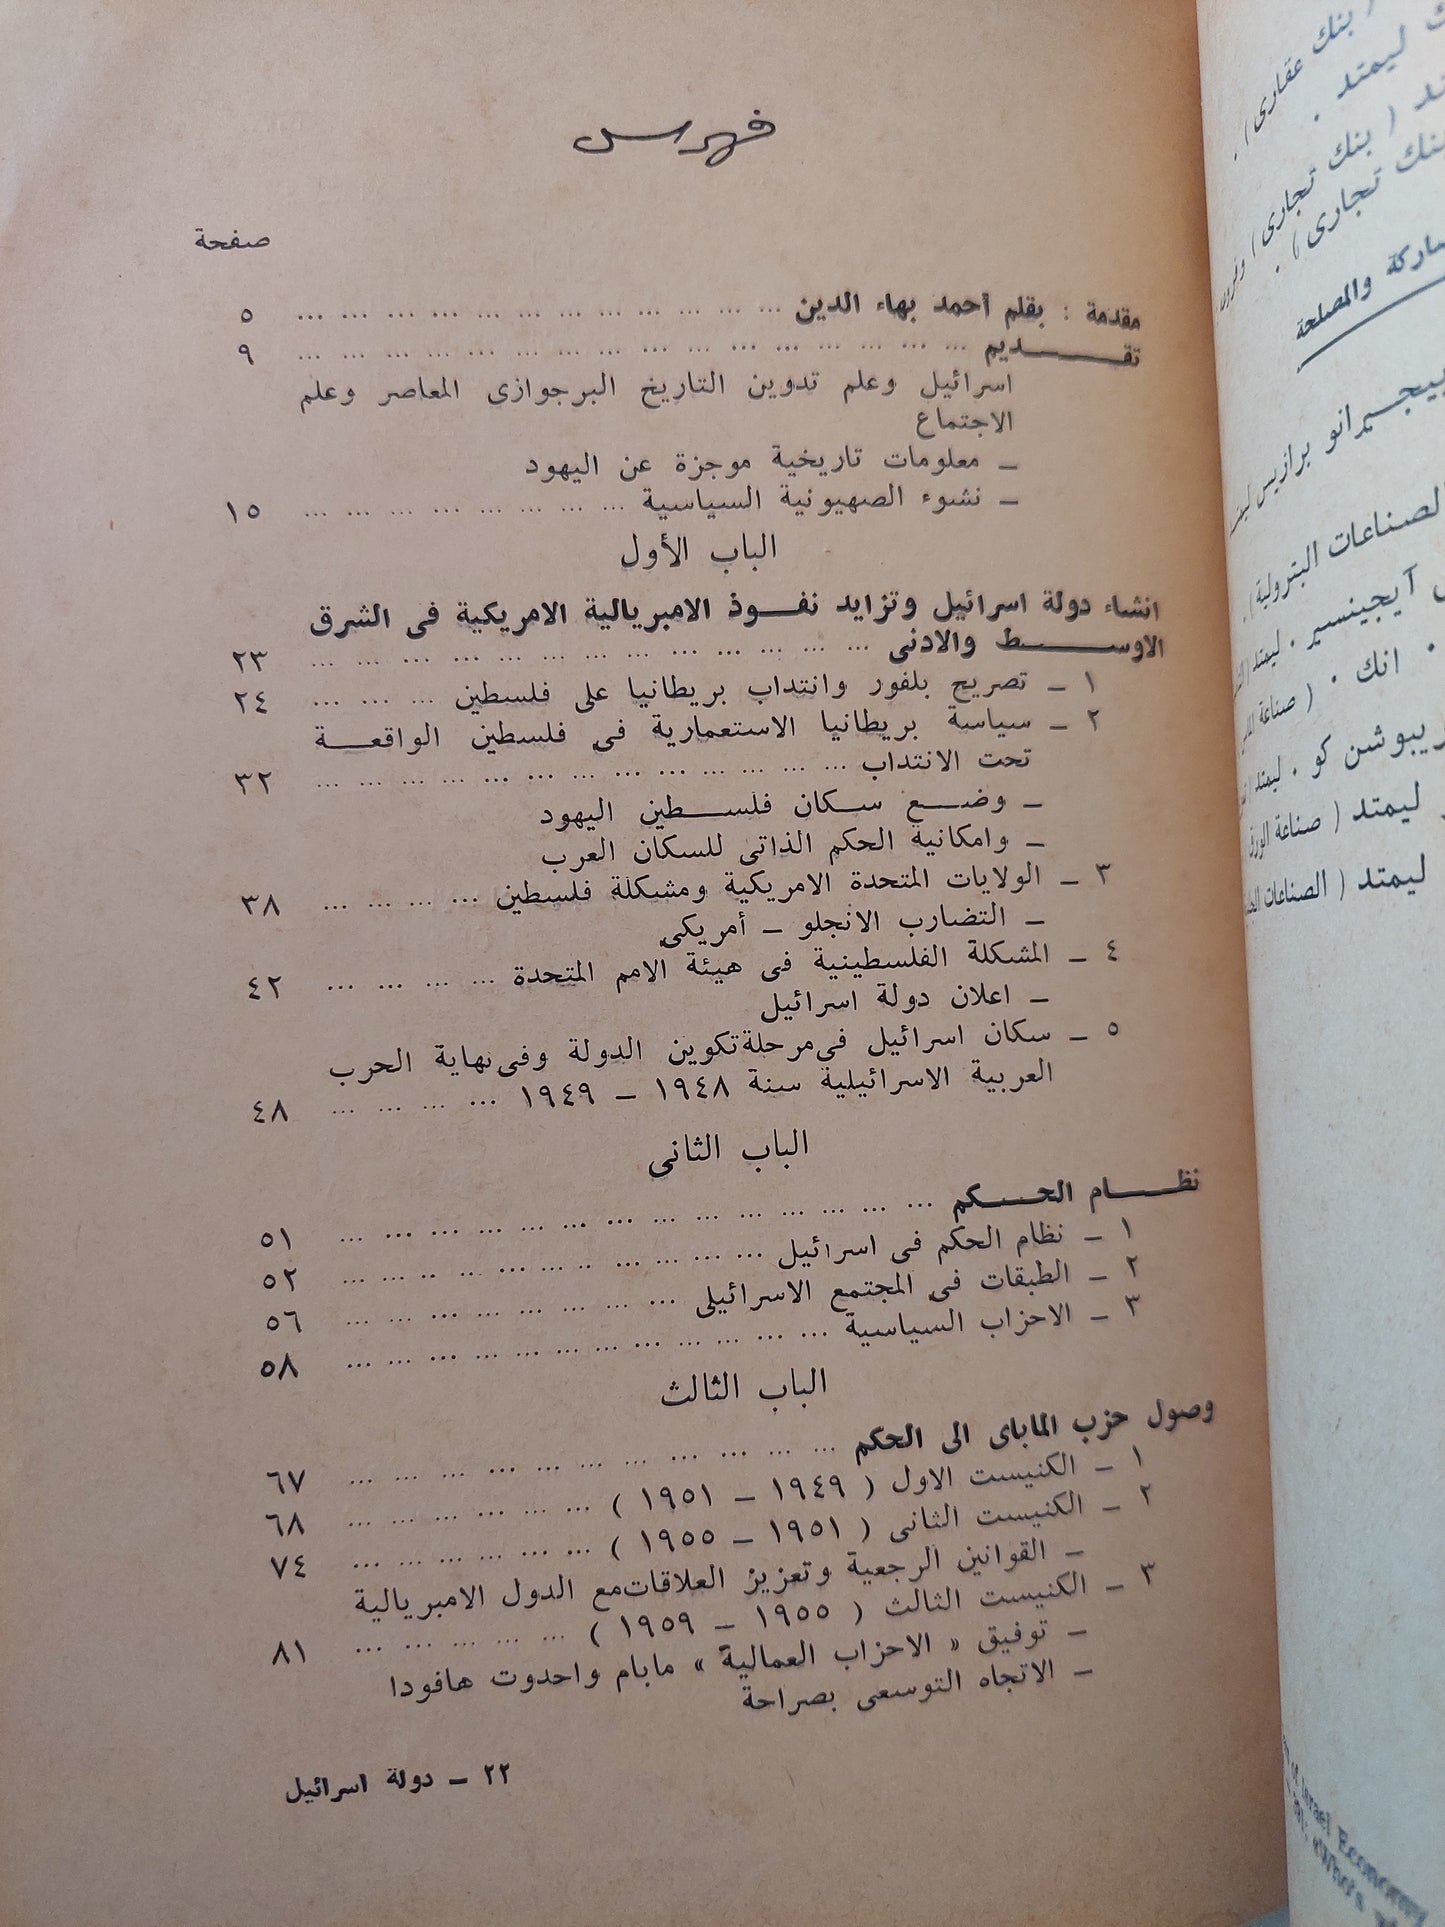 فهرس
صفحة
مقدمة : بقلم أحمد بهاء الدين ... ... ... ... ... ... ... ... ... ... ... ... ٥
تقـــــديم ... ... ... ... ... ... ... ... ... ... ... ... ... ... ... ٩
اسرائيل وعلم تدوين التاريخ البرجوازى المعاصر وعلم
الاجتماع
ـ معلومات تاريخية موجزة عن اليهود
ـ نشوء الصهيونية السياسية ... ... ... ... ... ... ... ... ١٥
الباب الأول
انشاء دولة اسرائيل وتزايد نفـــوذ الامبريالية الامريكية فى الشرق
الاوســـــط والادنى ... ... ... ... ... ... ... ... ... ... ... ... ... ٢٣
١ ـ تصريح بلفور وانتداب بريطانيا على فلسطين ... ... ... ٢٤
٢ ـ سياسة بريطانيا الاستعمارية فى فلسطين الواقعـــة
تحت الانتداب ... ... ... ... ... ... ... ... ... ... ... ... ... ٣٢
ـ وضـــع ســكان فلســطين اليهود
ـ وامكانية الحكم الذاتى للسكان العرب
٣ ـ الولايات المتحدة الامريكية ومشكلة فلسطين ... ... ... ... ٣٨
ـ التضارب الانجلو ـ أمريكى
٤ ـ المشكلة الفلسطينية فى هيئة الامم المتحدة ... ... ... ... ٤٢
ـ اعلان دولة اسرائيل
٥ ـ سكان اسرائيل فى مرحلة تكوين الدولة وفى نهاية الحرب
العربية الاسرائيلية سنة ١٩٤٨ ـ ١٩٤٩ ... ... ... ... ٤٨
الباب الثانى
نظـــــام الحـــكم ... ... ... ... ... ... ... ... ... ... ... ... ... ٥١
١ ـ نظام الحكم فى اسرائيل ... ... ... ... ... ... ... ... ... ... ٥٢
٢ ـ الطبقات فى المجتمع الاسرائيلى ... ... ... ... ... ... ... ... ٥٦
٣ ـ الاحزاب السياسية ... ... ... ... ... ... ... ... ... ... ... ... ٥٨
الباب الثالث
وصول حزب الماباى الى الحكم ... ... ... ... ... ... ... ... ... ... ... ٦٧
١ ـ الكنيست الاول ( ١٩٤٩ ـ ١٩٥١ ) ... ... ... ... ... ... ٦٨
٢ ـ الكنيست الثانى ( ١٩٥١ ـ ١٩٥٥ ) ... ... ... ... ... ... ٧٤
ـ القوانين الرجعية وتعزيز العلاقات مع الدول الامبريالية
٣ ـ الكنيست الثالث ( ١٩٥٥ ـ ١٩٥٩ ) ... ... ... ... ... ... ٨١
ـ توفيق « الاحزاب العمالية » مابام واحدوت هافودا
ـ الاتجاه التوسعى بصراحة
٢٢ ـ دولة اسرائيل
( بنك عقارى ) .
ليمتد .
( بنك تجارى )
بنك تجارى ) .
والمصلحة
برازيس
الصناعات البترولية ) .
آيجينسير . ليمتد
. انك . ( صناعة
كو . ليمتد
ليمتد ( صناعة الورق
ليمتد ( الصناعات
of Israel Economy
«Who's